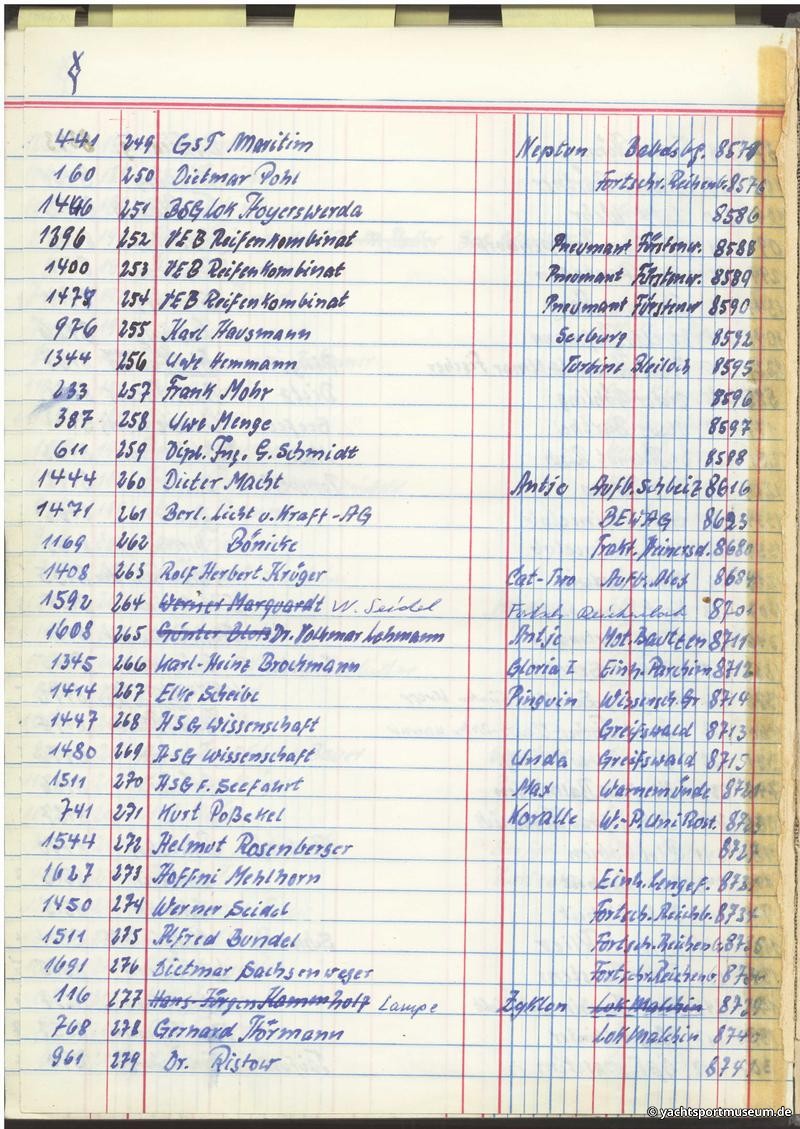 441 249 GST Maritim Neptun Babelsbg. 8574
160 250 Dietmar Pohl Fortschr. Reichenb. 8576
1446 251 BSG Lok Hoyerswerda 8586
1396 252 VEB Reifenkombinat Pneumant Fürstenw. 8588
1400 253 VEB Reifenkombinat Pneumant Fürstenw. 8589
1478 254 VEB Reifenkombinat Pneumant Fürstenw 8590
976 255 Karl Hausmann Seeburg 8592
1344 256 Hemmann Turbine Bleiloch 8595
233 257 Frank Mohr 8596
387 258 Uwe Menge 8597
611 259 Dipl. Ing. G. Schmidt 8598
1444 260 Dieter Macht Antje Aufb. Schleiz 8616
1471 261 Berl. Licht u. Kraft-AG BEWAG 8623
1169 262 Bönicke Trakt. Heinersd. 8680
1408 263 Rolf Herbert Krüger Cat-Two Aufb. 8684
1592 264 Werner Marquardt W. Seidel Fortsch. Reichenbach 8701
1608 265 Günter Dr. Volkmar Lehmann Antje Mot. Bautzen 8711
1345 266 Karl-Heinz Brochmann Gloria I Einh. Parchim 8712
1414 267 Elke Scheibe Pinguin Wissensch. Gr. 8714
1447 268 HSG Wissenschaft Greifswald 8713
1480 269 HSG Wissenschaft Unda Greifswald 8715
1511 270 ASG f. Seefahrt Max Warnemünde
741 271 Kurt Poßekel Koralle W.-P. Uni Rost.
1544 272 Helmut Rosenberger 8727
1627 273 Mehlhorn Einh. Lengef.
1450 274 Werner Seidel Fortsch. Reichb. 8734
1511 275 Alfred Bundel Fortsch. Reichenb.
1691 276 Dietmar Sachsenweger Fortschr. Reichenb.
116 277 Hans-Jürgen Hammholf Lampe Zyklon Lok Malchin 8739
768 278 Gerhard Thörmann Lok Malchin
961 279 Dr. Ristow
© yachtsportmuseum.de